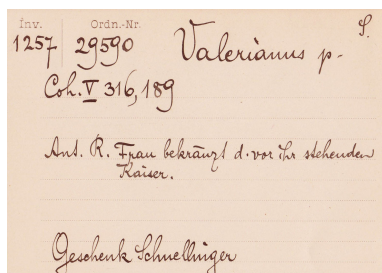 Inv. Ordn.-Nr. S.
1257 29590 Valerianus p-
Coh. V 316, 189
Ant. R. Frau bekränzt d. vor ihr stehenden
Kaiser.
Geschenk Schnellinger